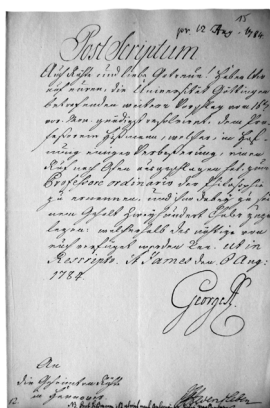 15
pr. 12 Aug. 1784.
Post Scriptum
Auch Räthe und liebe Getreue! Haben Wir
auf euren, die Universität Göttingen
betreffenden weitern Vortrag vom
vor. Mon. gnädigst resolvirt, dem Pro-
fessori, welcher, in Hof-
nung einiger Verbeßerung, einen
Ruf nach ausgeschlagen hat, zum
Professore ordinario der Philosophie
zu ernennen, und ihm dabey zu sei-
nem Gehalt hundert Thaler zuzu-
legen: weshalb das nöthige von
euch verfüget werden kan. Ut in
Rescripto. St James den 6 Aug:
1784.
George R.
An
die Geheimten Räthe
in Hannover
12.